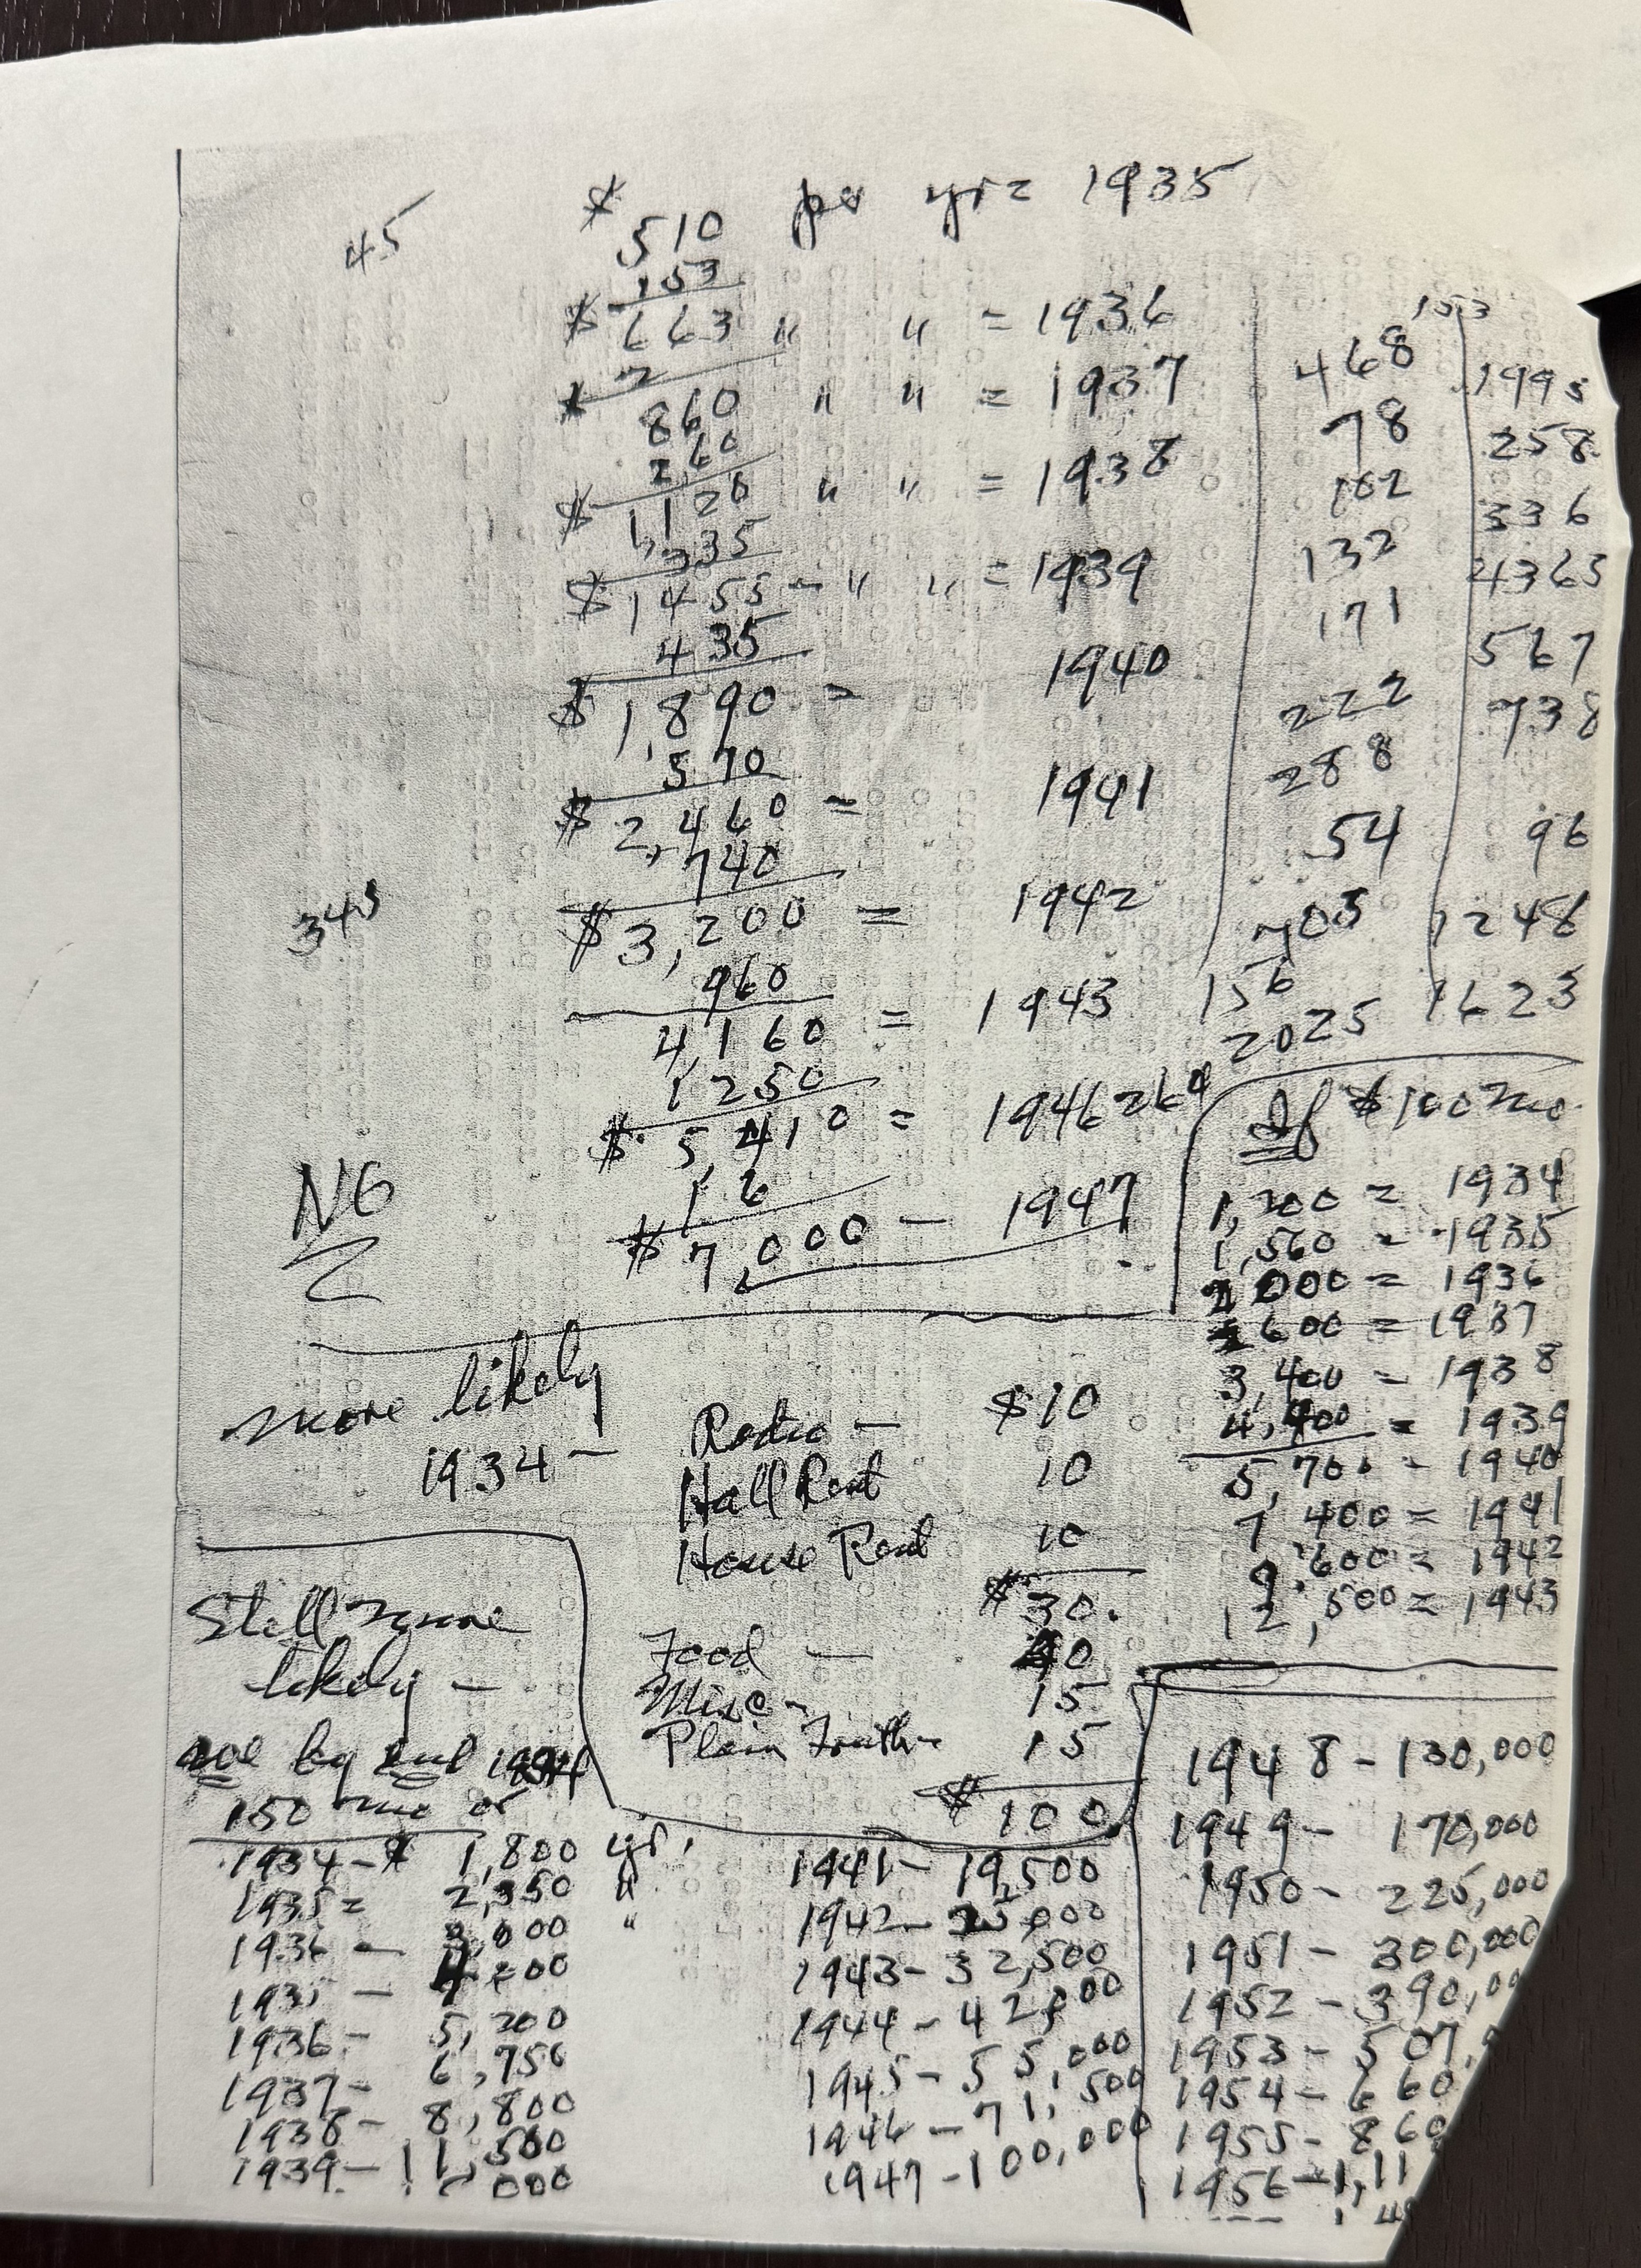 45
$ 510 per yr = 1935
153
$ 663 " " = 1936
2
$ 860 " " = 1937
260
$ 1,120 " " = 1938
335
$ 1455 - " " = 1939
435
$ 1,890 = 1940
570
$ 2,460 = 1941
740
$ 3,200 = 1942
345
960
4,160 = 1943
1250
$ 5,410 = 1946
1 6
$ 7,000 - 1947
NG
153
468
78
102
132
171
222
288
54
703
156
2025
1995
258
336
4365
567
738
96
1248
1623
If $100 mo.
1,200 = 1934
1,560 = 1935
2,000 = 1936
2600 = 1937
3,400 = 1938
4,400 = 1939
5,700 - 1940
7,400 = 1941
9,600 = 1942
12,500 = 1943
more likely
1934 - Radio - $10
Hall Rent 10
House Rent 10
$30.
Food - 40
Misc - 15
Plain Truth - 15
$100
Still more
likely -
by end 1934
150 mo or
1934 - $ 1,800 yr.
1935 = 2,350 "
1936 - 3,000 "
1935 - 4000
1936 - 5,200
1937 - 6,750
1938 - 8,800
1939 - 11,500
000
1941 - 19,500
1942 - 25,000
1943 - 32,500
1944 - 42,500
1945 - 55,000
1946 - 71,500
1947 - 100,000
1948 - 130,000
1949 - 170,000
1950 - 225,000
1951 - 300,000
1952 - 390,00
1953 - 507,
1954 - 660
1955 - 860
1956 - 1,11